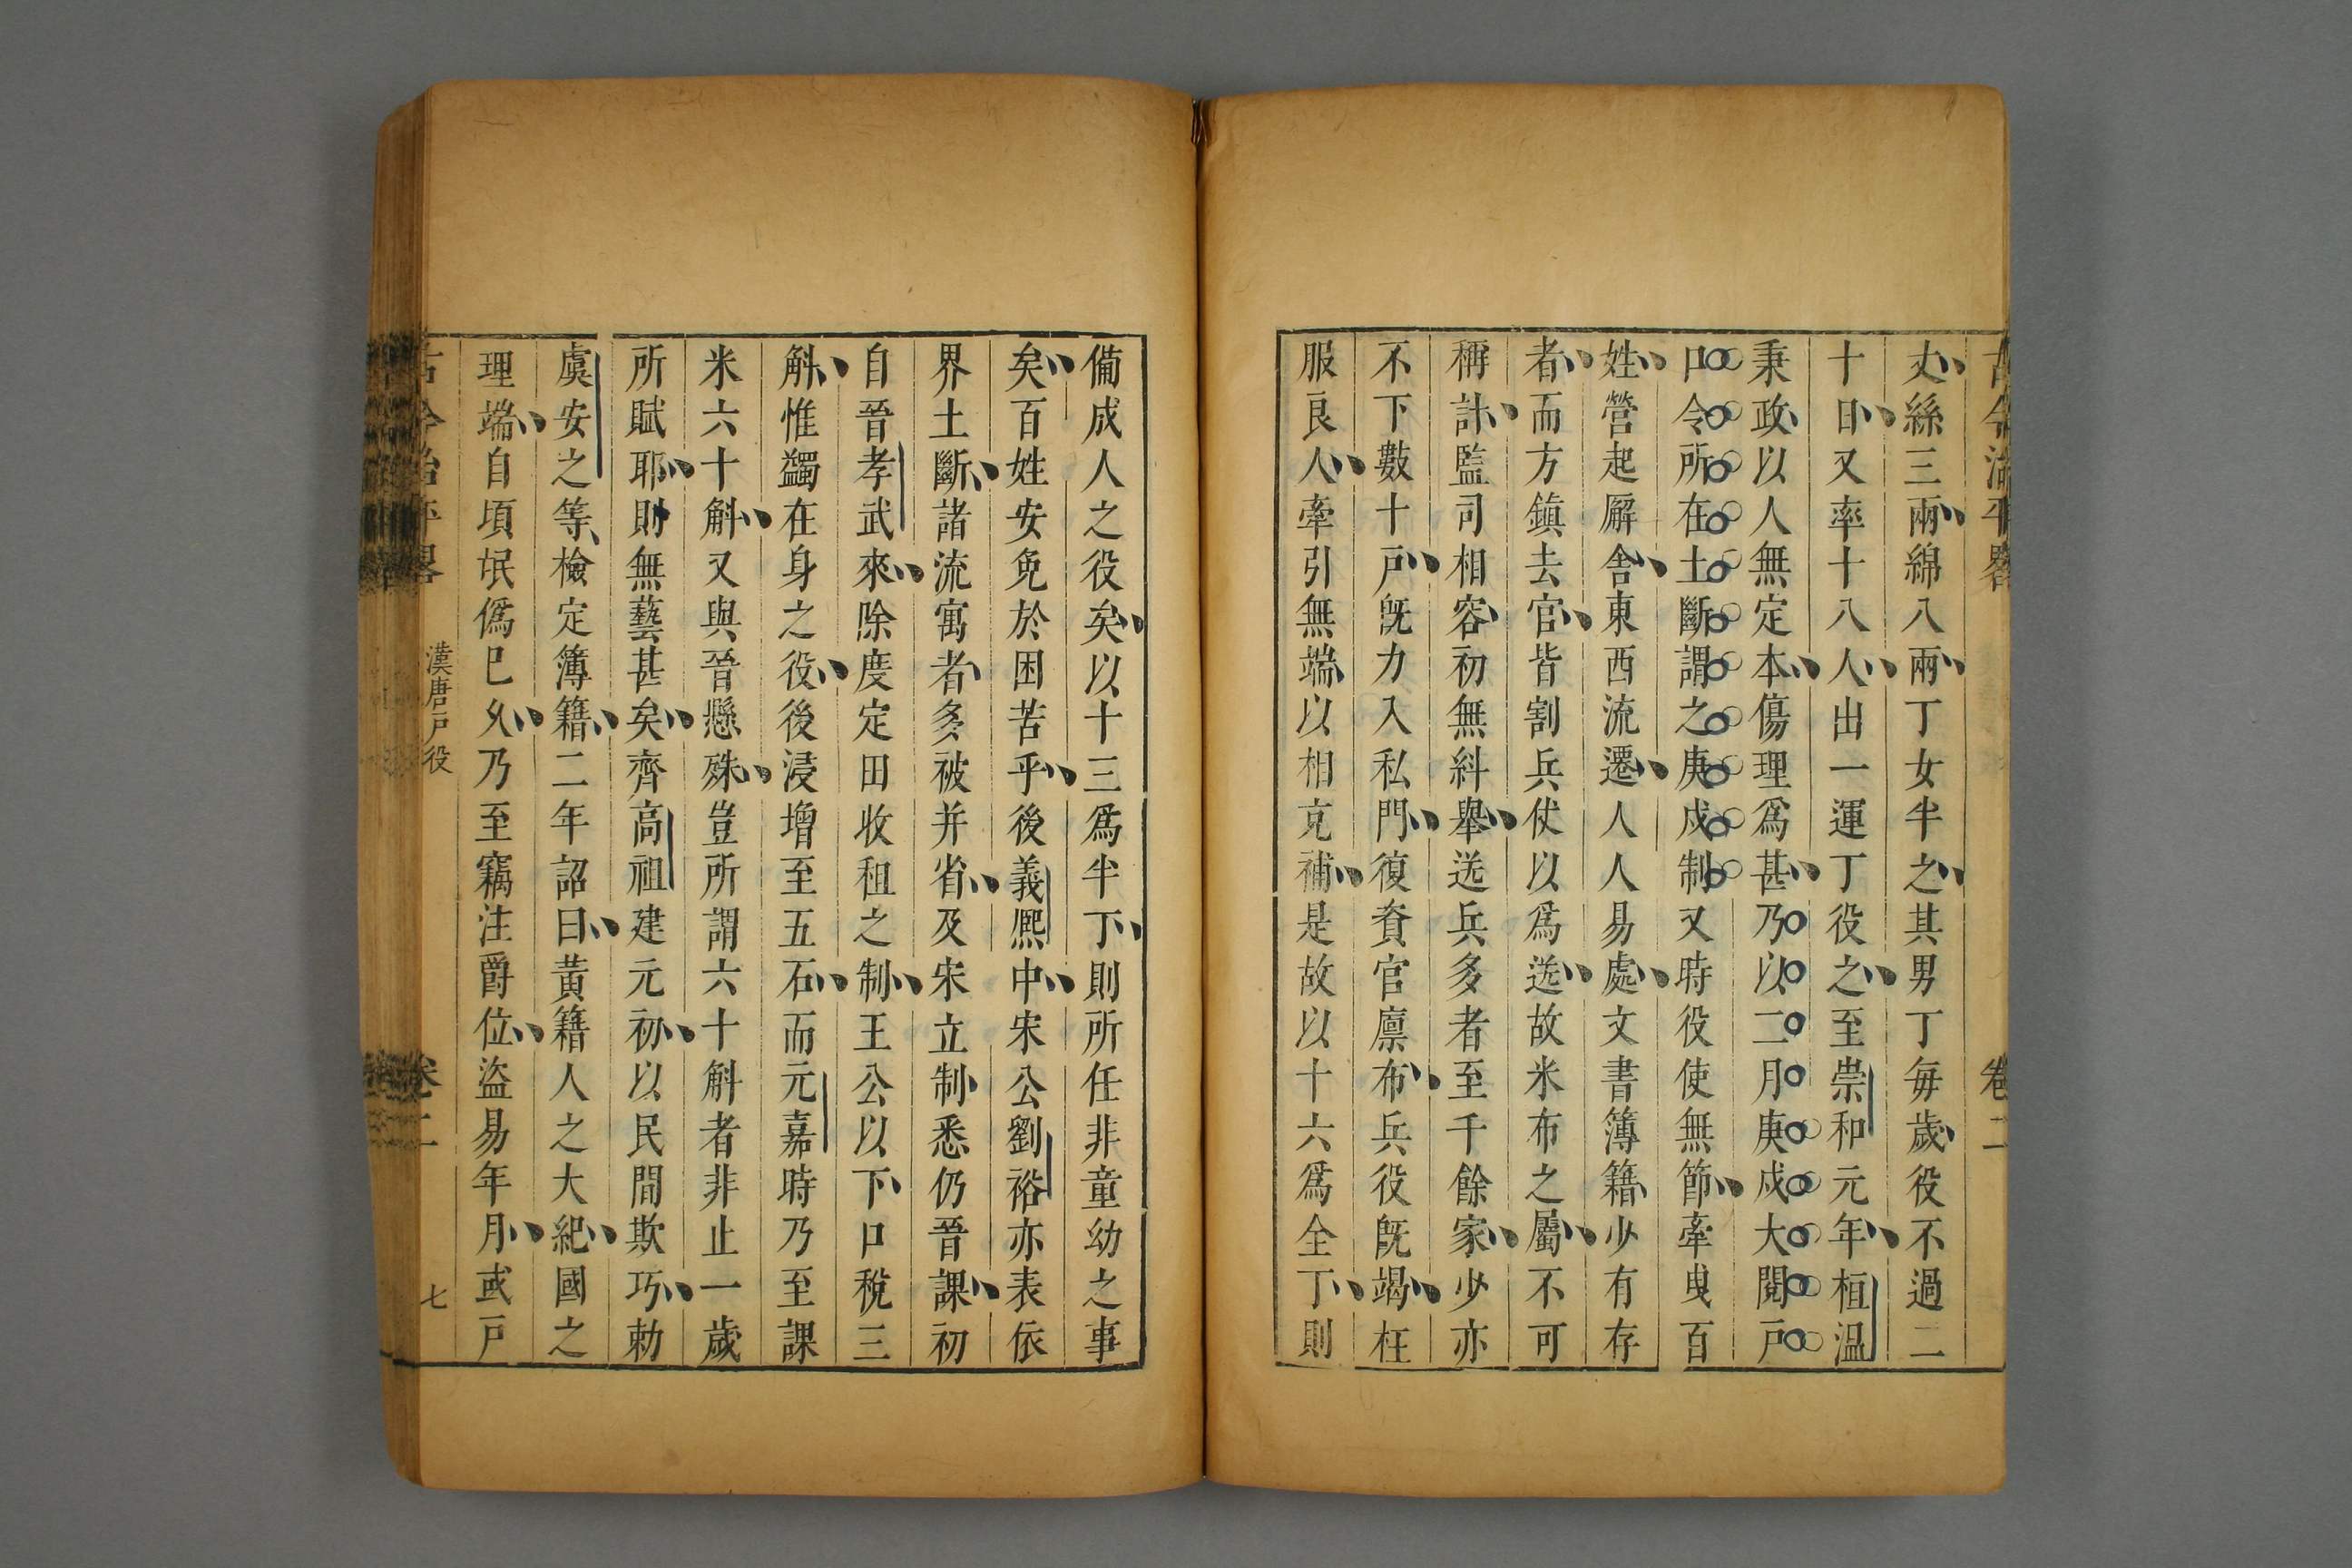 古今治平畧
卷二
丈絲三兩綿八兩丁女半之其男丁毎歲役不過二
十日又率十八人出一運丁役之至崇和元年桓温
秉政以人無定本傷理爲甚乃以二月庚戍大閱戸
口令所在土斷謂之庚戍制又時役使無節牽曳百
姓營起廨舍東西流遷人人易處文書簿籍少有存
者而方鎮去官皆割兵仗以爲送故米布之屬不可
稱計監司相容初無糾舉送兵多者至千餘家少亦
不下數十戸旣力入私門復資官廪布兵役旣竭枉
服良人牽引無端以相充補是故以十六爲全丁則
備成人之役矣以十三爲半下則所任非童幼之事
矣百姓安免於困苦乎後義熈中宋公劉裕亦表依
界土斷諸流寓者多被并省及宋立制悉仍晉課初
自晉孝武來除度定田收租之制王公以下口稅三
斛惟蠲在身之役後浸增至五石而元嘉時乃至課
米六十斛又與晉懸殊豈所謂六十斛者非止一歲
所賦耶則無藝甚矣齊高祖建元初以民間欺巧勅
虞安之等檢定簿籍二年詔曰黃籍人之大紀國之
理端自頃氓僞巳久乃至竊注爵位盜易年月或戸
古今治平畧
漢唐戸役
卷二
七